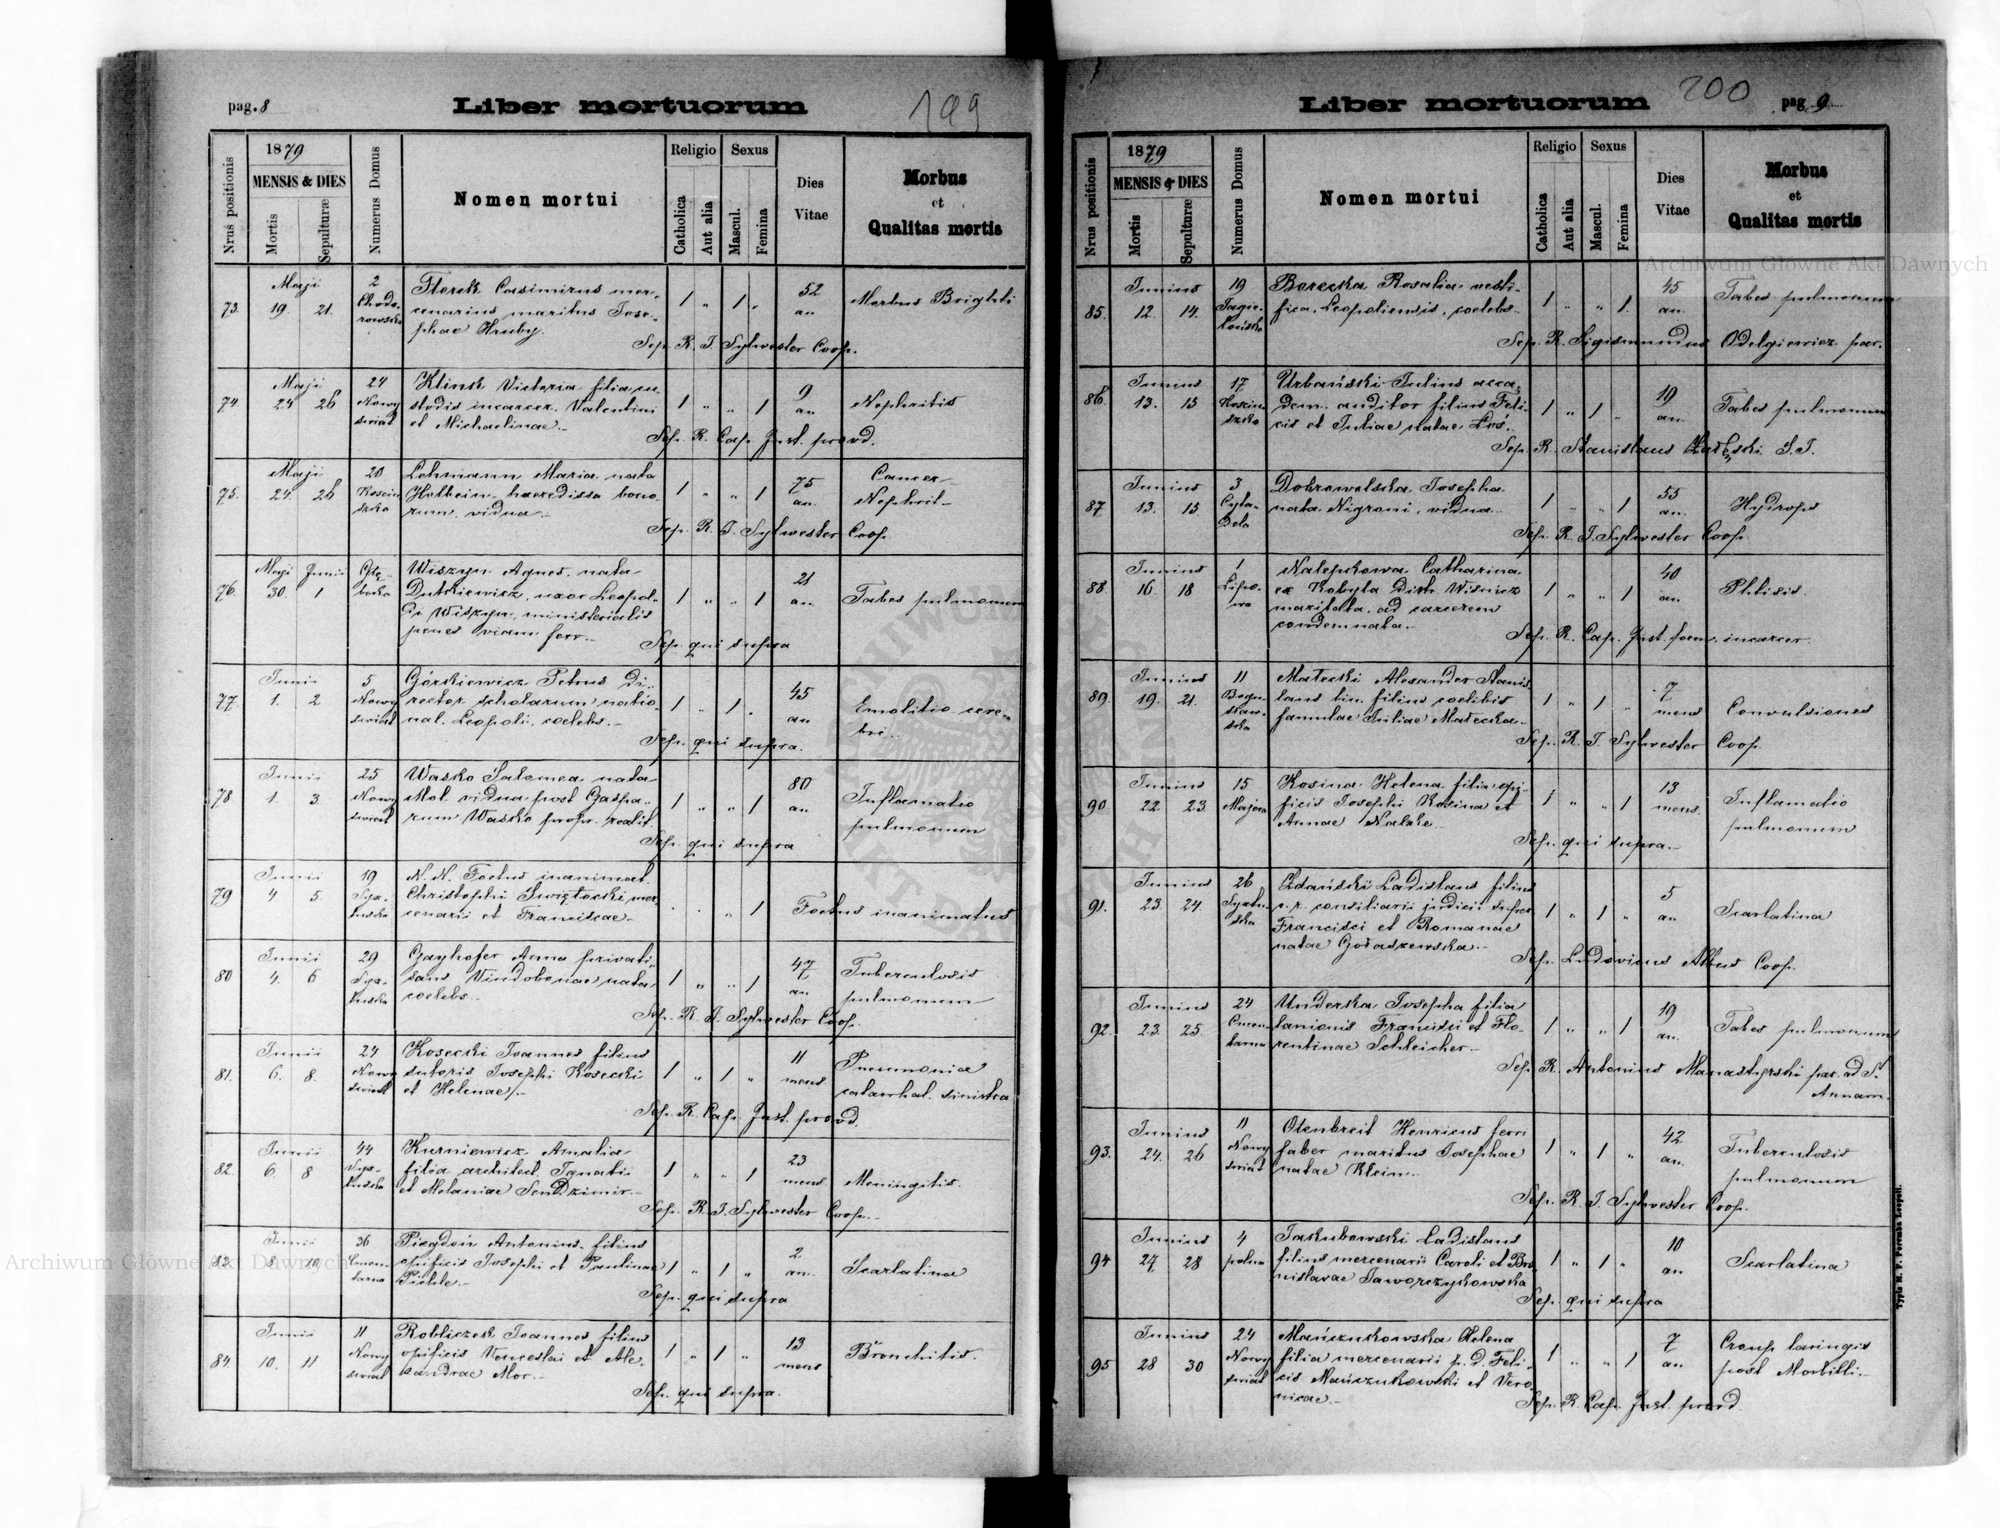 pag. 8
Liber mortuorum
199
Nrus positionis
1879
MENSIS & DIES
Mortis
Sepulturæ
Numerus Domus
Nomen mortui
Religio
Catholica
Aut alia
Sexus
Mascul.
Femina
Dies
Vitae
Morbus
et
Qualitas mortis
Maji 2 52
73. 19. 21. Chodorowska Florek Casimirus mer- 1 „ 1 „ an Morbus Brighti
cenarius maritus Jose-
phae Hruby.
Sep. R. J. Sylwester Coop.
Maji 24 9
74. 24 26 Nowy swiat Klink Victoria filia cu- 1 „ „ 1 an Nephritis
stodis incarcer. Valentini
et Michaelinae.
Sep. R. Cap. Inst. prov d.
Maji 20 75
75. 24. 26 Kosciuszko Lehmann Maria nata 1 „ „ 1 an. Cancer
Holbein haeredissa bono-
rum, vidua.
Sep. R. J. Sylwester Coop.
Maji Junii 21
76. 30. 1 Wiszyn Agnes nata 1 „ „ 1 an. Tabes pulmonum
Dutkiewicz, uxor Leopol-
di Wiszyn, ministerialis
penes viam ferr.
Sep. qui supra
Junii 5 45
77. 1. 2 Nowy swiat Górskiewicz Petrus Di- 1 „ 1 „ an Emolitio cere-
rector scholarum natio- bri.
nal. Leopoli, coelebs.
Sep. qui supra.
Junii 25 80
78 1. 3. Nowy swiat Wasko Salomea nata 1 „ „ 1 an Inflamatio
Mol. vidua post Gaspa- pulmonum
rum Wasko propr. realit.
Sep. qui supra
Junii 19
79 4 5. N. N. Foetus inanimat. „ 1 Foetus inanimatus
Christophi Swiętocki mer-
cenarii et Franciscae.
Junii 29 47
80 4. 6 Gayhofer Anna privati- 1 „ „ 1 an Tuberculosis
sans Vindobonae nata pulmonum
coelebs.
Sep. R. J. Sylwester Coop.
Junii 24 11
81. 6. 8. Nowy swiat Kosecki Joannes filius 1 „ 1 „ mens Pneumonia
sutoris Josephi Kosecki catarrhal. sinistra
et Helenae.
Sep. R. Cap. Inst. prov d.
Junii 44 23
82. 6. 8 Kurniewicz Amalia 1 „ „ 1 mens Meningitis.
filia architect. Ignatii
et Melaniae Sendzimir.
Sep. R. J. Sylwester Coop.
Junii 36 2
83. 8. 10. Cmentarna Piegdoń Antonius filius 1 „ 1 „ an. Scarlatina
opificis Josephi et Paulinae
Sep. qui supra
Junii 11 13
84. 10. 11 Nowy swiat Robliczek Joannes filius 1 „ 1 „ mens Bronchitis.
opificis Venceslai et Ale-
xandrae Mor.
Sep. qui supra.
Liber mortuorum
200
pag. 9
Nrus positionis
1879
MENSIS & DIES
Mortis
Sepulturæ
Numerus Domus
Nomen mortui
Religio
Catholica
Aut alia
Sexus
Mascul.
Femina
Dies
Vitae
Morbus
et
Qualitas mortis
Junius 19 45
85. 12. 14. Borecka Rosalia vesti- 1 „ „ 1. an. Tabes pulmonum
fica, Leopoliensis, coelebs.
Sep. R. Sigismundus Odelgiewicz par.
Junius 17 19
86. 13. 15 Kosciuszko Urbański Julius acca- 1 „ 1 „ an. Tabes pulmonum
dem. auditor filius Feli-
cis et Juliae natae Łos.
Sep. R. Stanislaus Załęski S. J.
Junius 3 55
87 13. 15 Cytadela Dobrowolska Josepha 1 „ „ 1 an. Hydrops
nata Nigroni, vidua.
Sep. R. J. Sylwester Coop.
Junius 1 40
88. 16. 18 Nalepkowa Catharina 1 „ „ 1 an Phtisis.
ex Kobyla Distr. Wisnicz
maritata, ad carcerem
condemnata.
Sep. R. Cap. Inst. foem. incarcer.
Junius 11 7
89. 19. 21. Małecki Alexander Stanis- 1 „ 1 „ mens Convulsiones
laus bin. filius coelibis
famulae Juliae Małecka.
Sep. R. J. Sylwester Coop.
Junius 15 13
90. 22. 23 Majora Kosina Helena filia opi- 1 „ „ 1 mens. Inflamatio
ficis Josephi Kosina et pulmonum
Annae
Sep. qui supra.
Junius 26 5
91. 23. 24. Zdański Ladislaus filius 1 „ 1 „ an Scarlatina
c. r. consiliarii judicii supre.
Francisci et Romanae
natae Goraszewska.
Sep. Ludovicus Albus Coop.
Junius 24 19
92. 23. 25. Cmentarna Underska Josepha filia 1 „ „ 1 an. Tabes pulmonum
lanionis Francisci et Flo-
rentinae Schleicher.
Sep. R. Antonius Manastyrski par. ad S.
Annam.
Junius 11 42
93. 24. 26 Nowy swiat Otenbreit Henricus ferri 1 „ 1 „ an. Tuberculosis
faber maritus Josephae pulmonum
natae Klein.
Sep. R. J. Sylwester Coop.
Junius 4 10
94 27 28 polna Jakubowski Ladislaus 1 „ 1 „ an Scarlatina
filius mercenarii Caroli et Bro-
nislavae Jaworczykowska
Sep. qui supra
Junius 24 7
95 28 30 Nowy swiat Mańczukowska Helena 1 „ „ 1 an Croup laringis
filia mercenarii p. d. Feli- post Morbilli.
cis Mańczukowski et Vero-
nicae.
Sep. R. Cap. Inst. prov d.
Typis H. F. Poremba Leopoli.
Archiwum Główne Akt Dawnych
Archiwum Główne Akt Dawnych